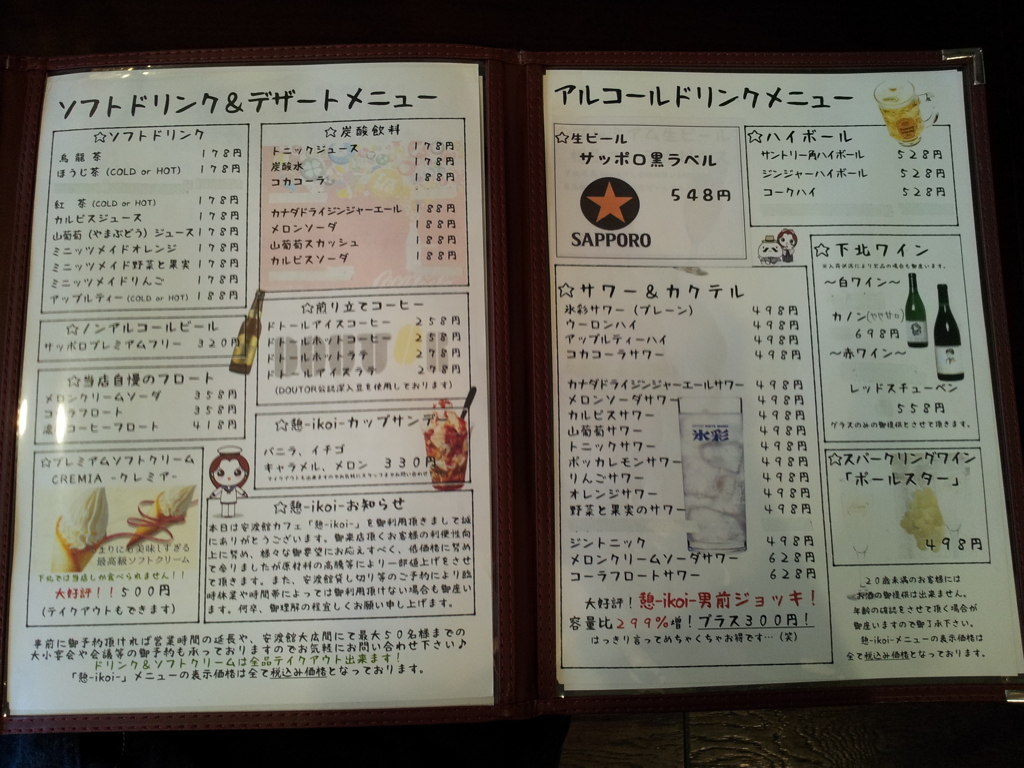 ソフトドリンク&デザートメニュー
☆ソフトドリンク
烏龍茶 178円
ほうじ茶(COLD or HOT) 178円
紅 茶(COLD or HOT) 178円
カルピスジュース 178円
山葡萄(やまぶどう)ジュース 178円
ミニッツメイドオレンジ 178円
ミニッツメイド野菜と果実 178円
ミニッツメイドりんご 178円
アップルティー(COLD or HOT) 188円
☆ノンアルコールビール
サッポロプレミアムフリー 320円
☆当店自慢のフロート
メロンクリームソーダ 358円
コーラフロート 358円
コーヒーフロート 418円
☆プレミアムソフトクリーム
CREMIA -クレミア-
あまりにも美味しすぎる
最高級ソフトクリーム
下北では当店しか食べられません!!
大好評!!500円
(テイクアウトもできます)
☆炭酸飲料
トニックジュース 178円
炭酸水 178円
コカコーラ 188円
カナダドライジンジャーエール 188円
メロンソーダ 188円
山葡萄スカッシュ 188円
カルピスソーダ 188円
☆煎り立てコーヒー
ドトールアイスコーヒー 258円
ドトールホットコーヒー 258円
ドトールホットラテ 278円
ドトールアイスラテ 278円
(DOUTOR公認深入豆を使用しております)
☆憩-ikoi-カップサンデー
バニラ、イチゴ
キャラメル、メロン 330円
☆憩-ikoi-お知らせ
本日は安渡館カフェ「憩-ikoi-」を御利用頂きまして誠
にありがとうございます。御来店頂くお客様の利便性向
上に努め、様々な御要望にお応えすべく、低価格に努め
て参りましたが原材料の高騰等により一部値上げをさせ
て頂きます。また、安渡館貸し切り等のご予約により臨
時休業や時間帯によっては御利用頂けない場合も御座い
ます。何卒、御理解の程宜しくお願い申し上げます。
事前に御予約頂ければ営業時間の延長や、安渡館大広間にて最大50名様までの
大小宴会や会議等の御予約も承っておりますのでお気軽にお問い合わせ下さい♪
ドリンク&ソフトクリームは全品テイクアウト出来ます!
「憩-ikoi-」メニューの表示価格は全て税込み価格となっております。
アルコールドリンクメニュー
☆生ビール
サッポロ黒ラベル
548円
SAPPORO
☆ハイボール
サントリー角ハイボール 528円
ジンジャーハイボール 528円
コークハイ 528円
☆サワー&カクテル
氷彩サワー(プレーン) 498円
ウーロンハイ 498円
アップルティーハイ 498円
コカコーラサワー 498円
カナダドライジンジャーエールサワー 498円
メロンソーダサワー 498円
カルピスサワー 498円
山葡萄サワー 498円
トニックサワー 498円
ポッカレモンサワー 498円
りんごサワー 498円
オレンジサワー 498円
野菜と果実のサワー 498円
氷彩
ジントニック 498円
メロンクリームソーダサワー 628円
コーラフロートサワー 628円
大好評!憩-ikoi-男前ジョッキ!
容量比299%増!プラス300円!
はっきり言ってめちゃくちゃお得です…(笑)
☆下北ワイン
※入荷状況により欠品の場合も御座います。
~白ワイン~
カノン(やや甘口)
698円
~赤ワイン~
レッドスチューベン
558円
グラスのみの御提供とさせて頂きます。
☆スパークリングワイン
「ポールスター」
498円
20歳未満のお客様には
お酒の御提供は出来ません。
年齢の確認をさせて頂く場合が
御座いますので御了承下さい。
憩-ikoi-メニューの表示価格は
全て税込み価格となっております。